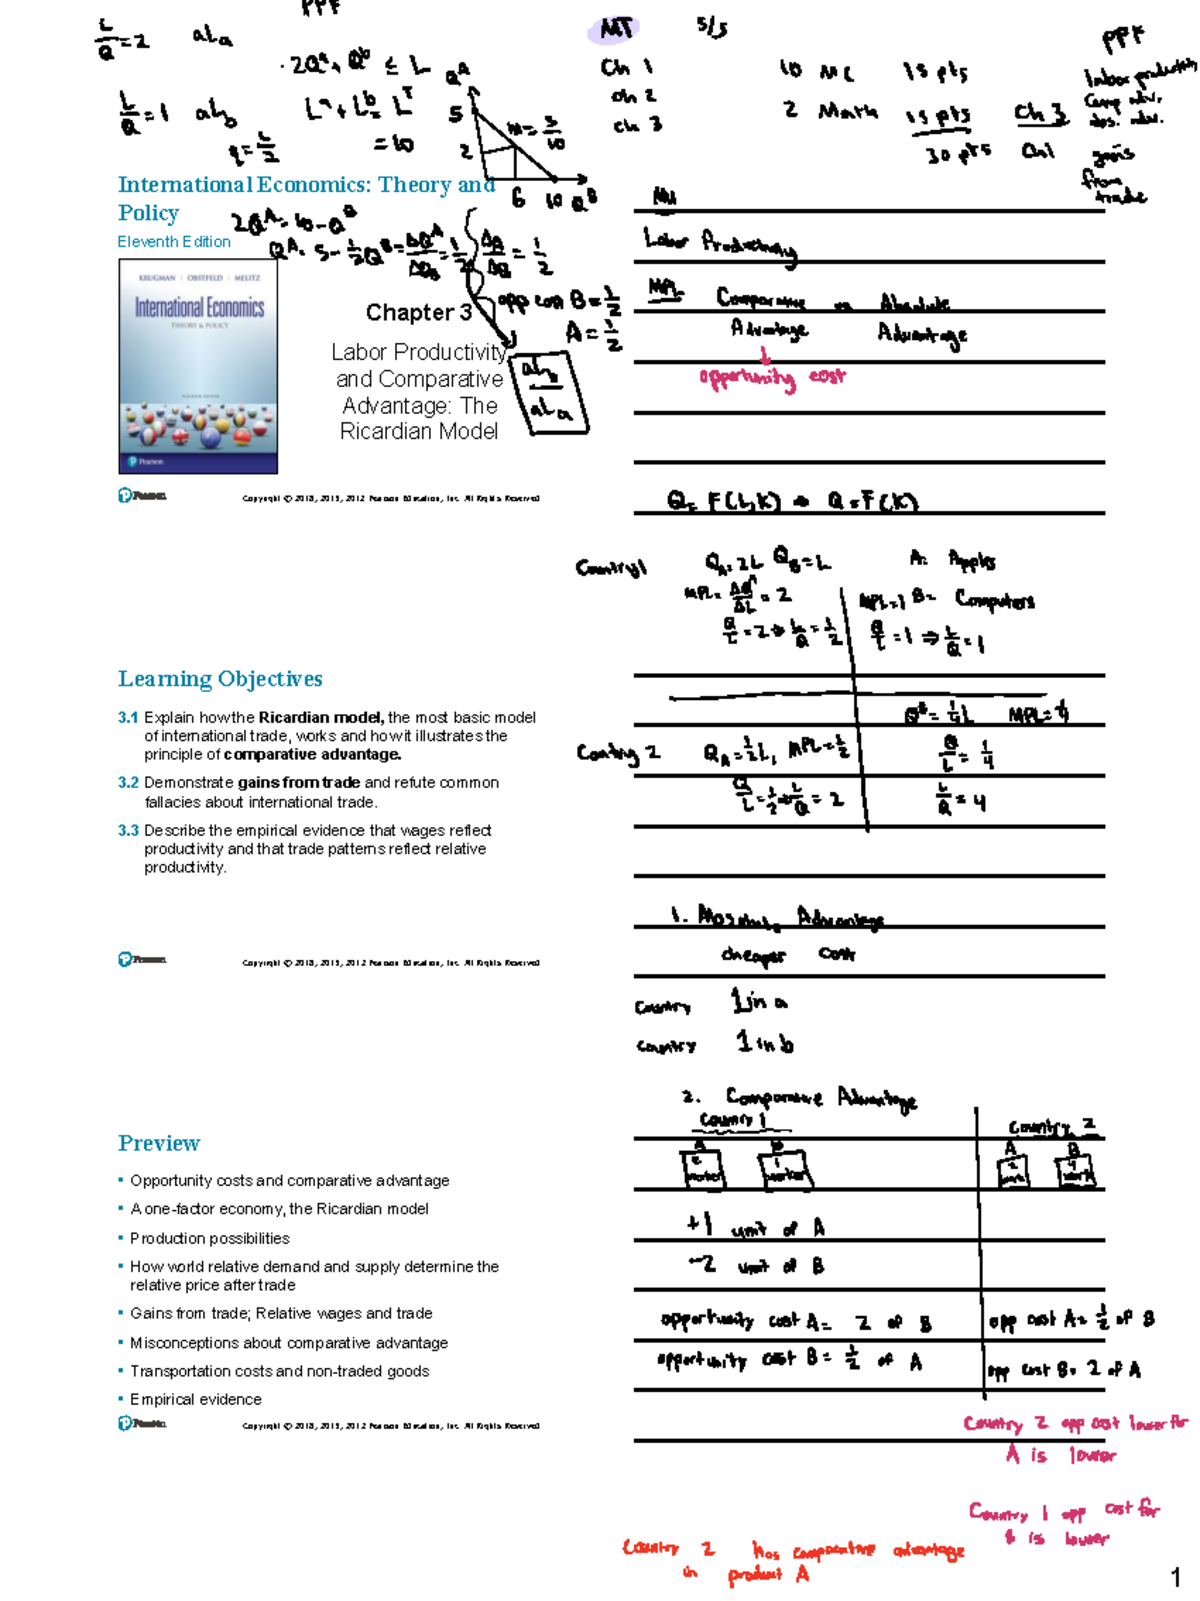 PPF
L/Q = 2 aLa
· 2Qᵃ + Qᵇ ≤ L
L/Q = 1 aLb
Lᵃ + Lᵇ = Lᵀ
q = L/2
= 10
Qᴬ
5
2
m = 5/10
6 10 Qᴮ
MT 5/5
Ch 1 10 MC 15 pts
Ch 2 2 Math 15 pts
Ch 3 30 pts
Ch 3
PPF
labor productivity
Comp adv.
abs. adv.
gains
from
trade
International Economics: Theory and
Policy
Eleventh Edition
2Qᴬ = 10 - Qᴮ
Qᴬ = 5 - 1/2Qᴮ = ΔQᴬ/ΔQB = 1/2 ΔA/ΔB = 1/2
KRUGMAN | OBSTFELD | MELITZ
International Economics
THEORY & POLICY
ELEVENTH EDITION
Pearson
opp cost B = 1/2
A = 1/2
aLb/aLa
Chapter 3
Labor Productivity
and Comparative
Advantage: The
Ricardian Model
Pearson Copyright © 2018, 2015, 2012 Pearson Education, Inc. All Rights Reserved
Labor Productivity
MPL Comparative vs Absolute
Advantage Advantage
opportunity cost
Q = F(L,K) → Q = F(,K)
Country 1 QA = 2L QB = L A: Apples
MPL = ΔQᴬ/ΔL = 2 MPL = 1 B = Computers
Q/L = 2 ⇒ L/Q = 1/2 Q/L = 1 ⇒ L/Q = 1
Qᴮ = 1/4L MPL = 4
Country 2 QA = 1/2L, MPL = 1/2 Q/L = 1/4
Q/L = 1/2 ⇒ L/Q = 2 L/Q = 4
Learning Objectives
3.1 Explain how the Ricardian model, the most basic model
of international trade, works and how it illustrates the
principle of comparative advantage.
3.2 Demonstrate gains from trade and refute common
fallacies about international trade.
3.3 Describe the empirical evidence that wages reflect
productivity and that trade patterns reflect relative
productivity.
Pearson Copyright © 2018, 2015, 2012 Pearson Education, Inc. All Rights Reserved
1. Absolute Advantage
cheaper cost
Country 1 in a
Country 1 in b
2. Comparative Advantage
Country 1 Country 2
A B A B
worker 1 worker 2 work 4 work
+1 unit of A
-2 unit of B
opportunity cost A = 2 of B opp cost A = 1/2 of B
opportunity cost B = 1/2 of A opp cost B = 2 of A
Country 2 opp cost lower for
A is lower
Country 1 opp cost for
B is lower
Country 2 has comparative advantage
in product A
Preview
• Opportunity costs and comparative advantage
• A one-factor economy, the Ricardian model
• Production possibilities
• How world relative demand and supply determine the
relative price after trade
• Gains from trade; Relative wages and trade
• Misconceptions about comparative advantage
• Transportation costs and non-traded goods
• Empirical evidence
Pearson Copyright © 2018, 2015, 2012 Pearson Education, Inc. All Rights Reserved
1